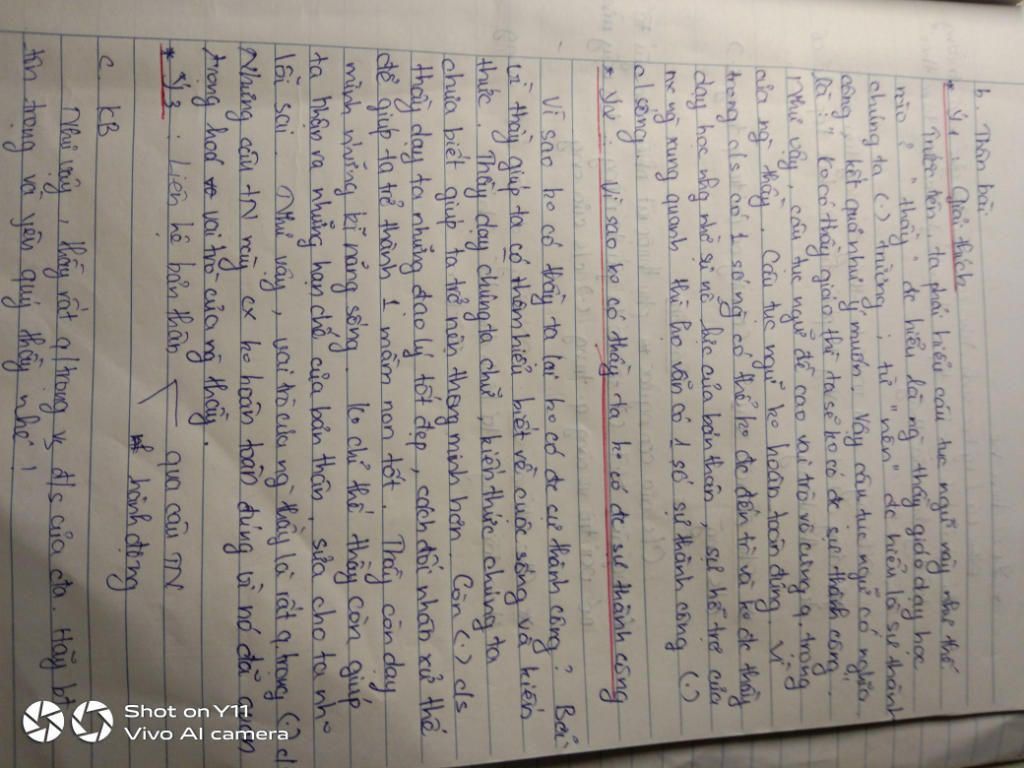 b. Thân bài
* Ý1 : Giải thích
Trước tiên, ta phải hiểu câu tục ngữ này như thế
nào? " thầy " đc hiểu là ng thầy giáo dạy học
chúng ta (.) trường ; từ " nên " đc hiểu là sự thành
công, kết quả như ý muốn. Vậy câu tục ngữ có nghĩa
là : " ko có thầy giáo thì ta sẽ ko có đc sự thành công.
Như vậy, câu tục ngữ đề cao vai trò vô cùng q. trọng
của ng thầy. Câu tục ngữ ko hoàn toàn đúng. Vì
trong c/s có 1 số ng có thể ko đc đến tr và ko đc thầy
dạy học nhg nhờ sự nỗ lực của bản thân, sự hỗ trợ của
mọi ng xung quanh thì họ vẫn có 1 số sự thành công (.)
c/sống
* Ý2 : Vì sao ko có thầy ta ko có đc sự thành công
Vì sao ko có thầy ta lại ko có đc sự thành công? Bởi
vì thầy giúp ta có thêm hiểu biết về cuộc sống và kiến
thức. Thầy dạy chúng ta chữ, kiến thức chúng ta
chưa biết giúp ta trở nên thông minh hơn. Còn (.) c/s
thầy dạy ta những đạo lý tốt đẹp, cách đối nhân xử thế
để giúp ta trở thành 1 mầm non tốt. Thầy còn dạy
mình những kĩ năng sống. Ko chỉ thế thầy còn giúp
ta nhận ra những hạn chế của bản thân, sửa cho ta những
lỗi sai. Như vậy, vai trò của ng thầy là rất q.trọng (.) c/s
Nhưng câu TN này cx ko hoàn toàn đúng vì nó đã
trọng hoá vai trò của ng thầy.
* Ý3 : Liên hệ bản thân qua câu TN
hành động
c. KB
Như vậy, thầy rất q/trọng vs đ/s của ta. Hãy biết
tôn trọng và yêu quý thầy nhé !
Shot on Y11
Vivo AI camera